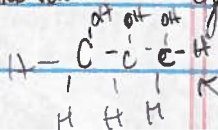 OH OH OH
H - C - C - C - H
H H H